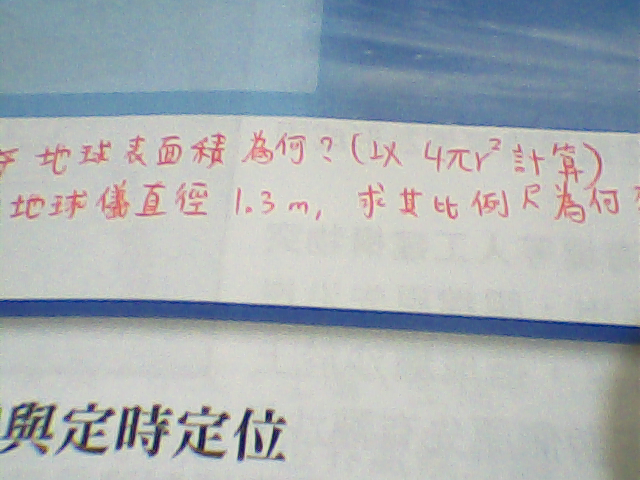 地球表面積為何?(以 4πr² 計算)
地球儀直徑 1.3 m, 求其比例尺為何
與定時定位